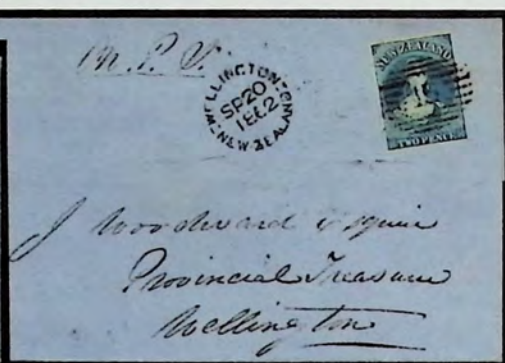 WELLINGTON
SP 20
1862
NEW·ZEALAND
NEW ZEALAND
TWO PENCE
J Woodward Esquire
Provincial Treasurer
Wellington